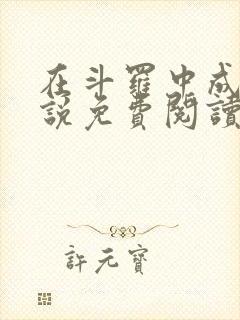 在斗羅中成
說免費閱讀
許元寶